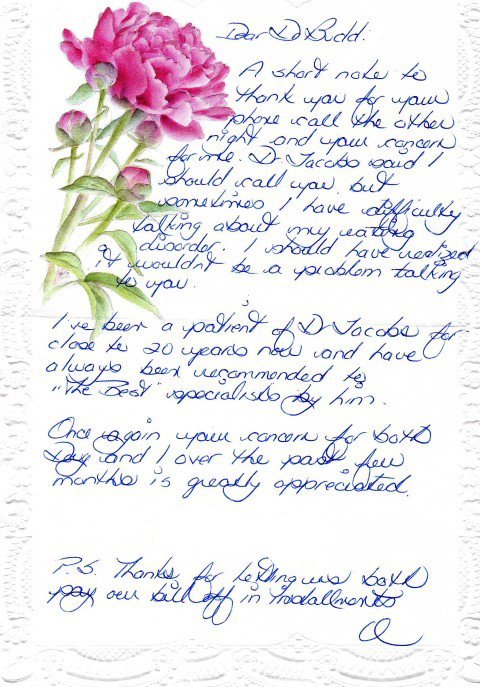 Dear Dr Budd:
A short note to
thank you for your
phone call the other
night and your concern
for me. Dr Jacobs said I
should call you, but
sometimes I have difficulty
talking about my eating
disorder. I should have realized
it wouldn't be a problem talking
to you.
I've been a patient of Dr Jacobs for
close to 20 years now and have
always been recommended to
"The Best" specialists by him.
Once again your concern for both
and I over the past few
months is greatly appreciated.
P.S. Thanks for letting us both
pay our bill off in installments